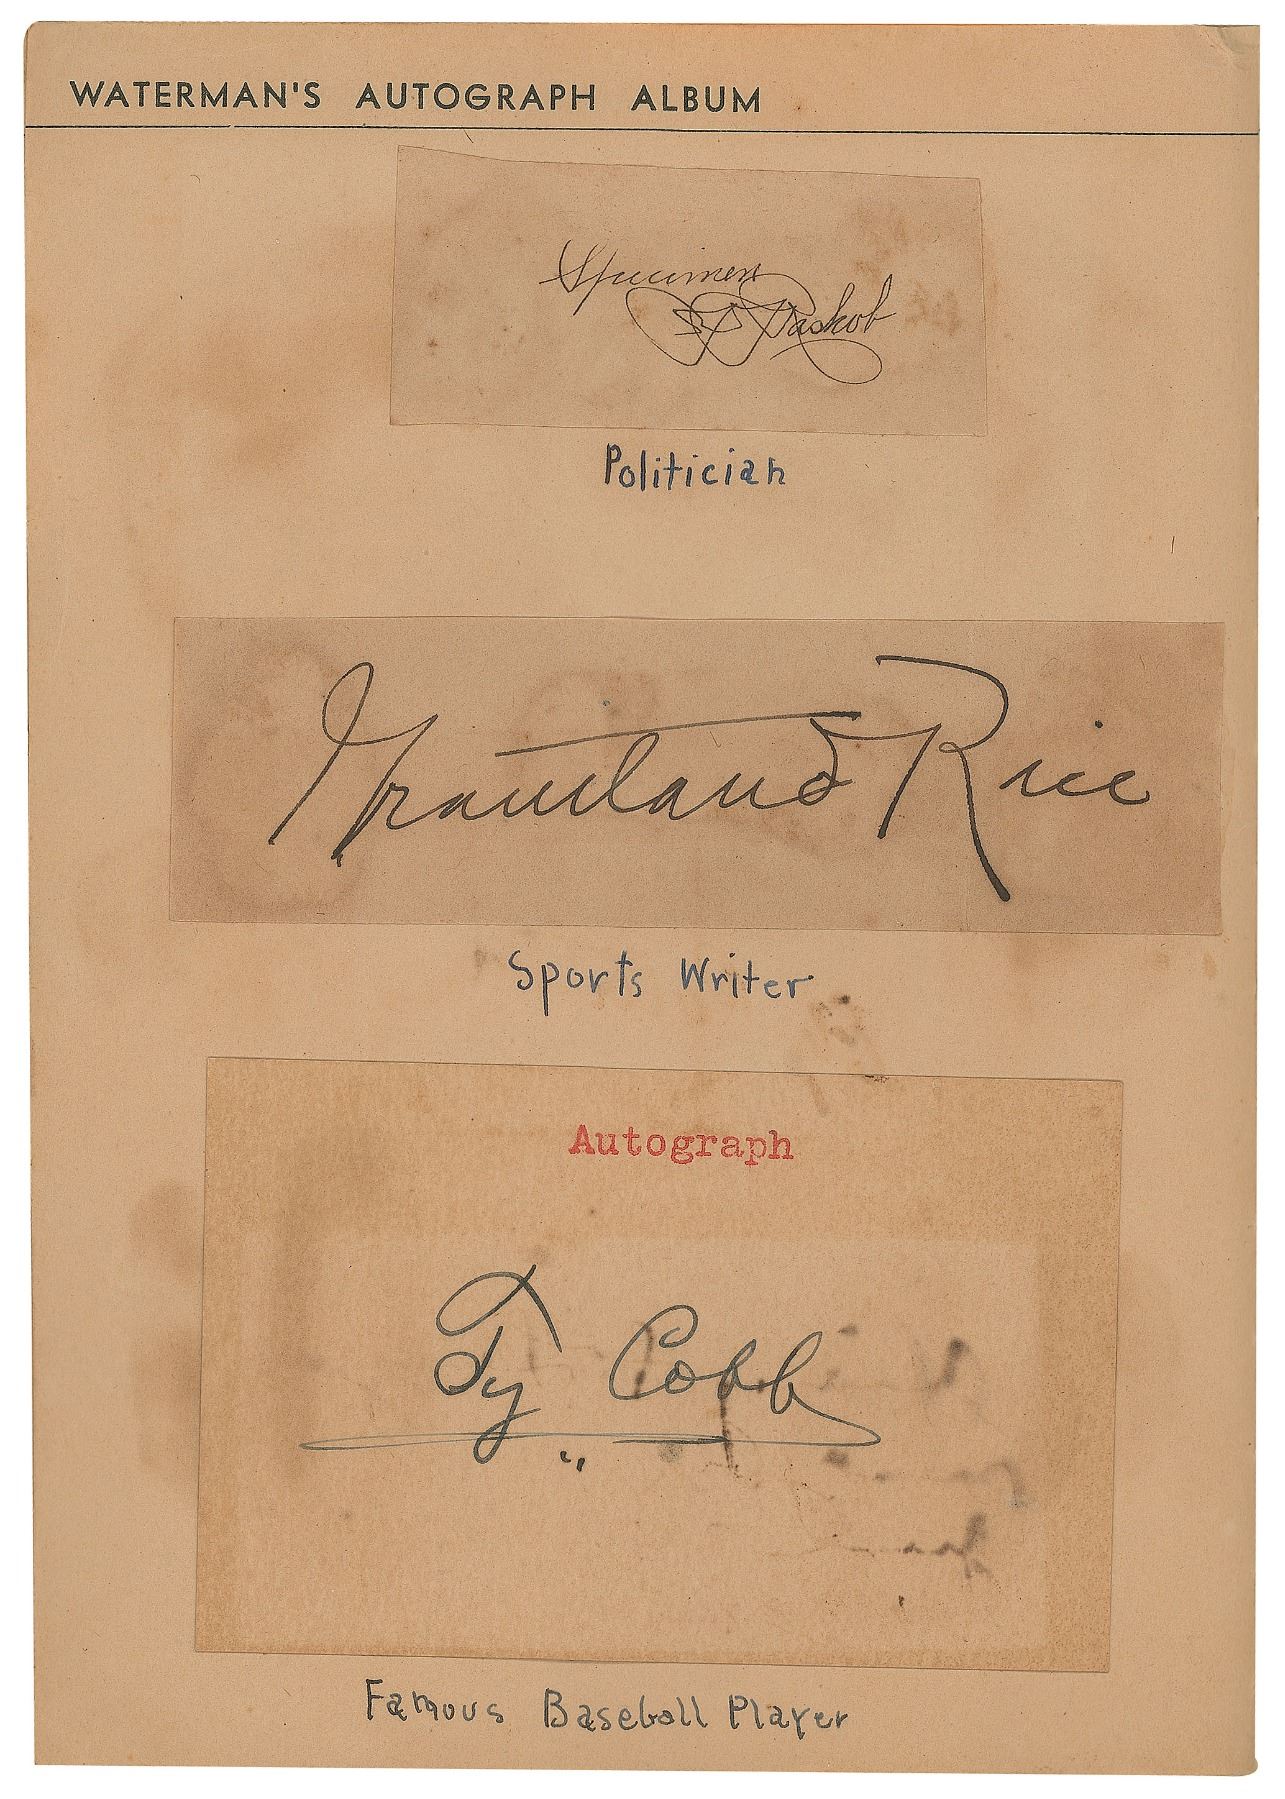 WATERMAN'S AUTOGRAPH ALBUM
Specimen
Raskob
Politician
Grantland Rice
Sports Writer
Autograph
Ty Cobb
Famous Baseball Player